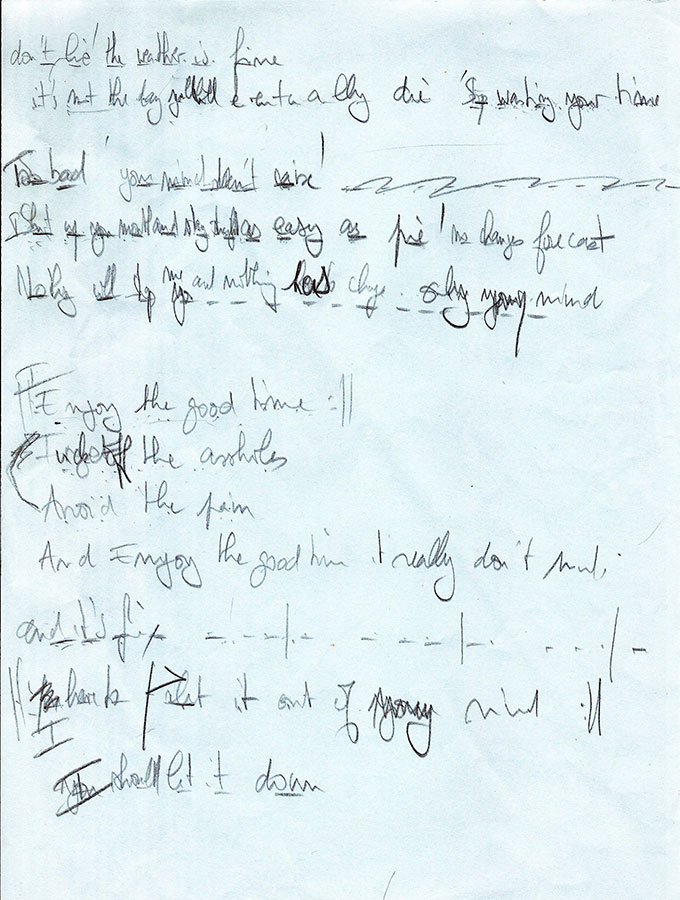 don't lie the weather is fine
it's not the day you'll eventually die Stop wasting your time
Too bad your mind don't
Shut up your mouth and as easy as pie no changes forecast
Nothing will stop me and nothing has change only your mind
Enjoy the good time :||
the assholes
Avoid the pain
And Enjoy the good time it really don't
and it's fix
it out of your mind :||
You should let it down